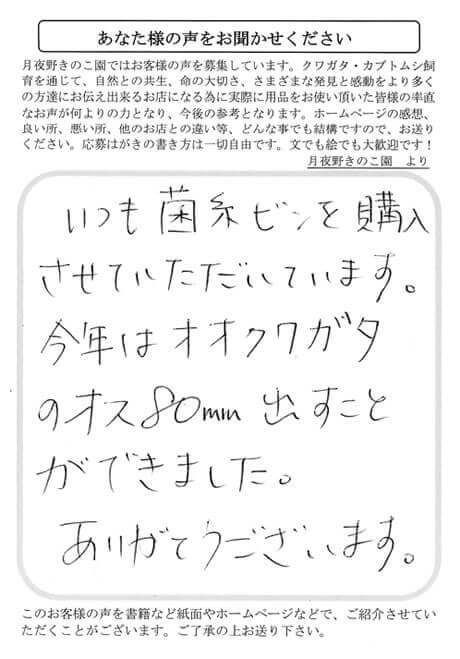 あなた様の声をお聞かせください
月夜野きのこ園ではお客様の声を募集しています。クワガタ・カブトムシ飼
育を通じて、自然との共生、命の大切さ、さまざまな発見と感動をより多く
の方達にお伝え出来るお店になる為に実際に用品をお使い頂いた皆様の率直
なお声が何よりの力となり、今後の参考となります。ホームページの感想、
良い所、悪い所、他のお店との違い等、どんな事でも結構ですので、お送り
ください。応募はがきの書き方は一切自由です。文でも絵でも大歓迎です！
月夜野きのこ園　より
いつも菌糸ビンを購入
させていただいています。
今年はオオクワガタ
のオス80mm 出すこと
ができました。
ありがとうございます。
このお客様の声を書籍など紙面やホームページなどで、ご紹介させてい
ただくことがございます。ご了承の上お送り下さい。